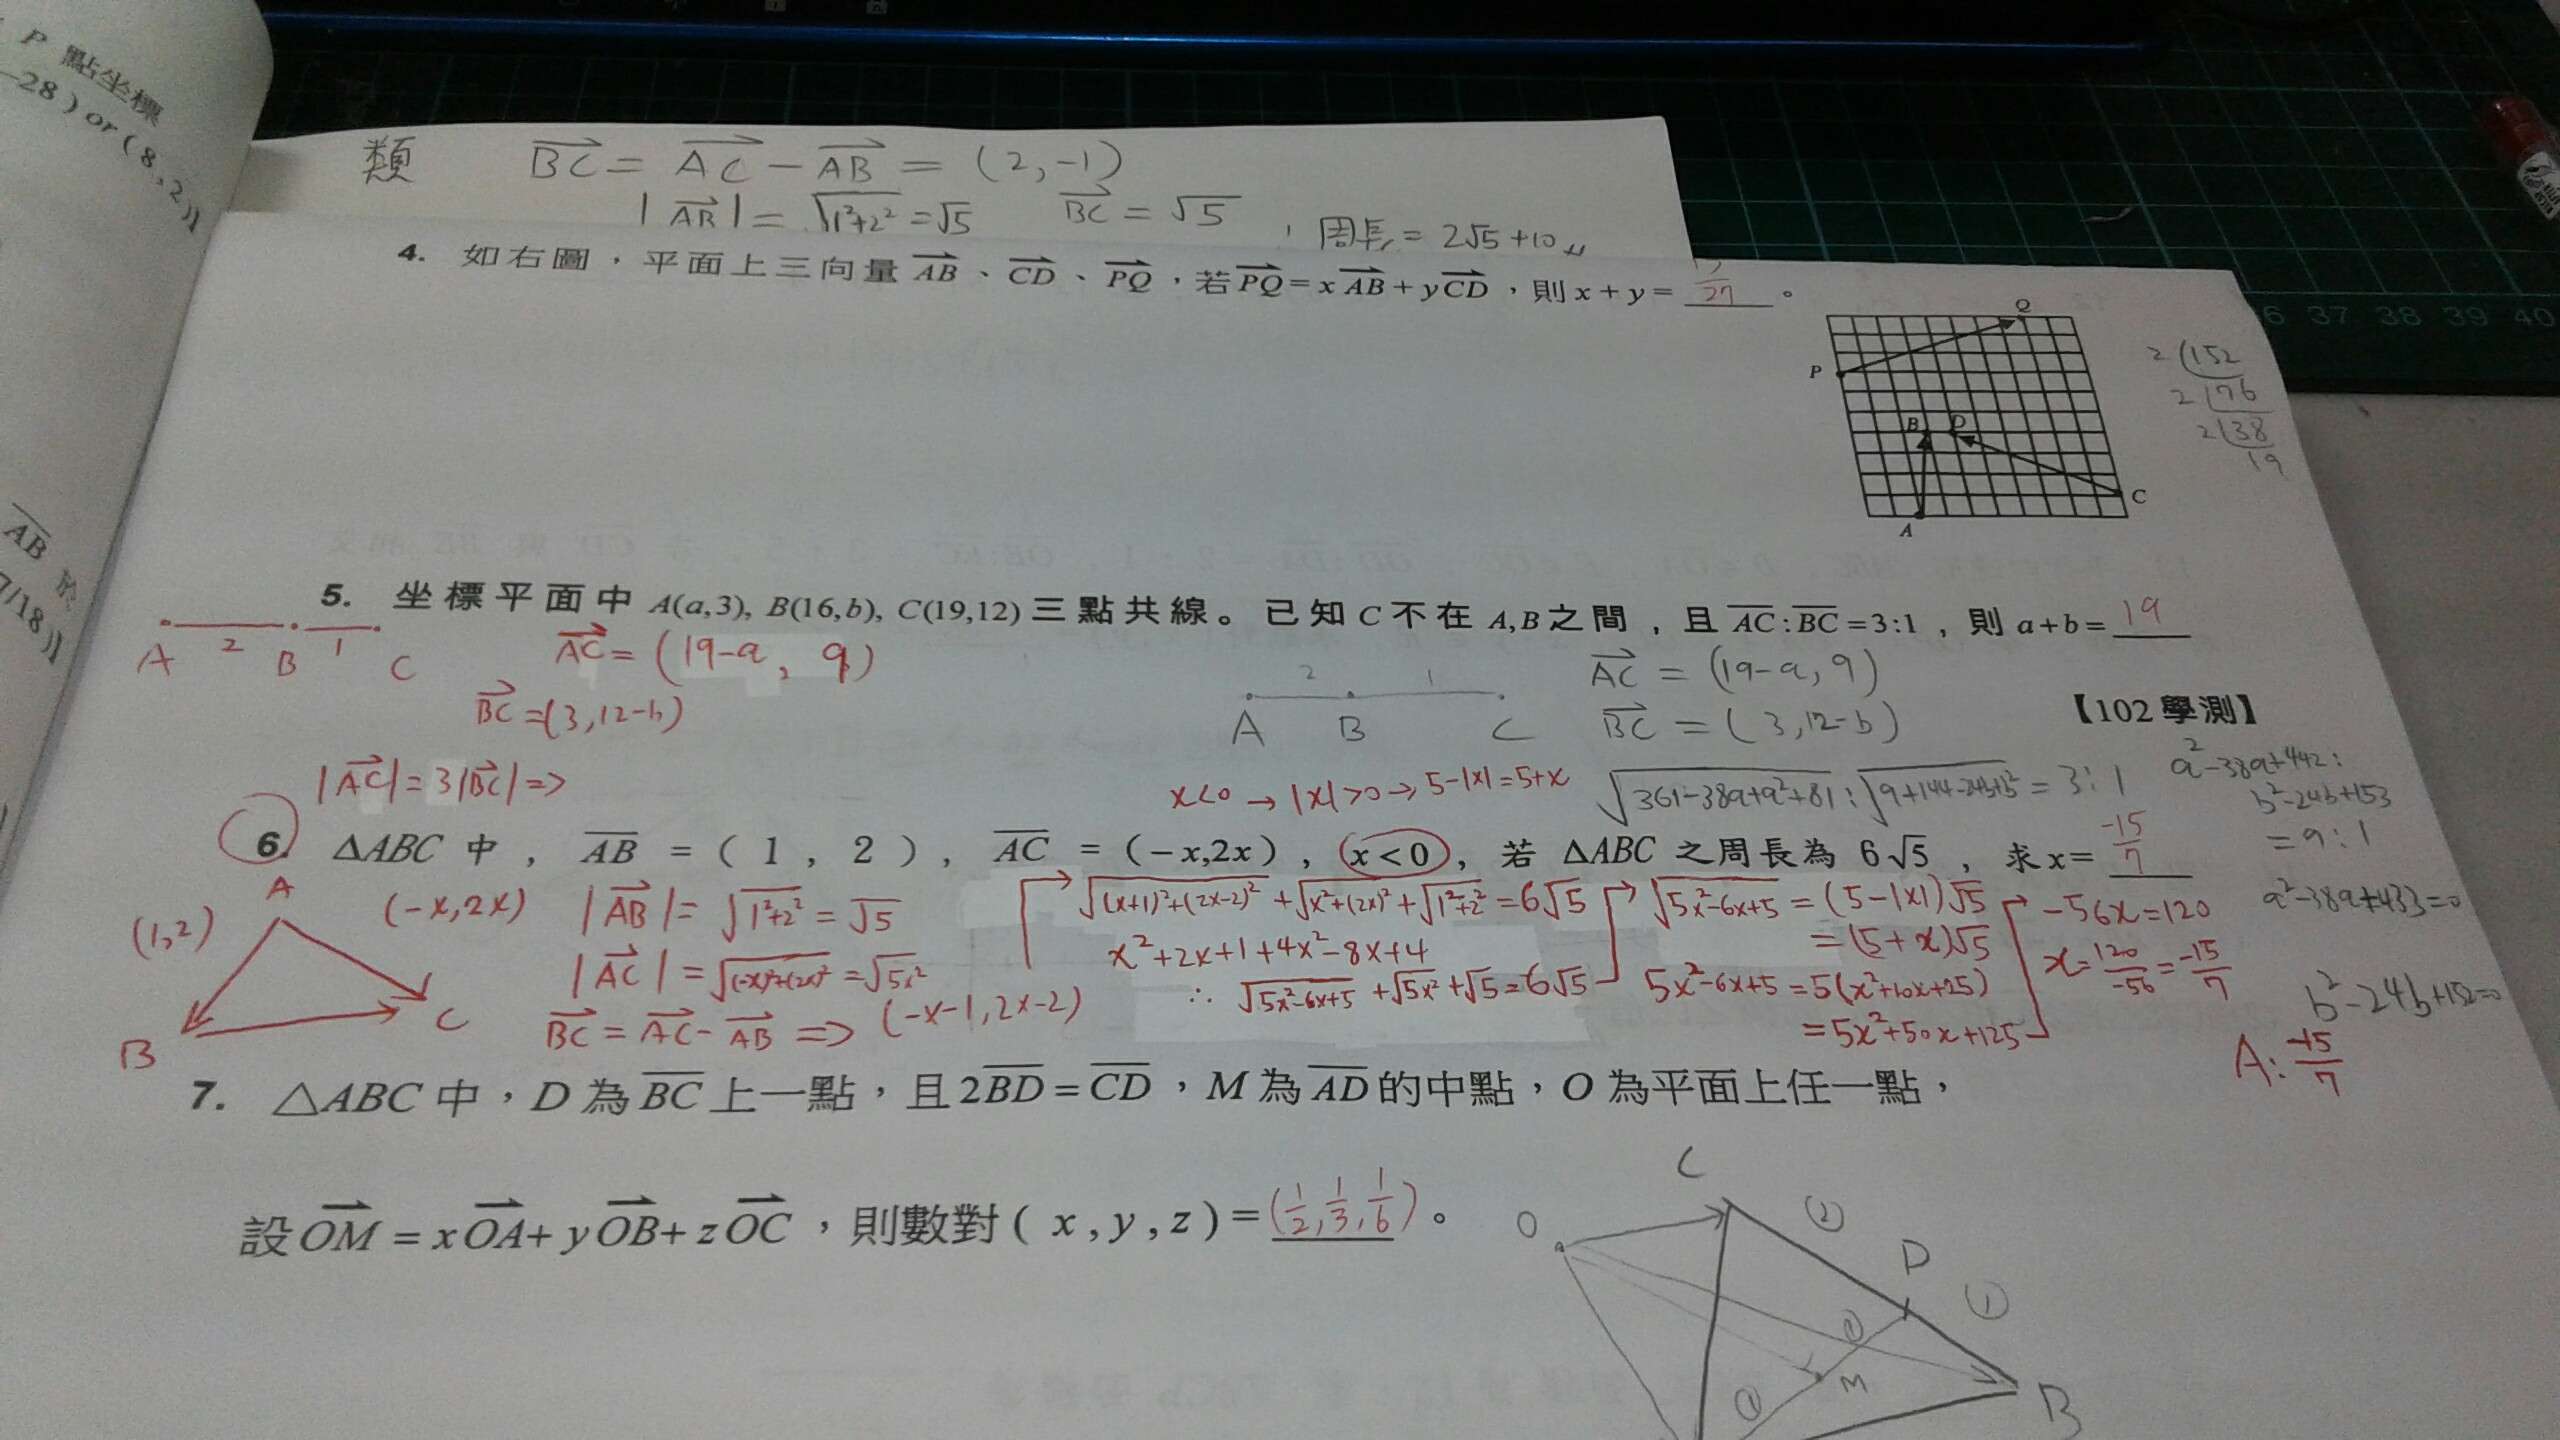 P 點坐標
-28 ) or ( 8 , 2 )】
AB 於
7/18 )】
類 BC = AC - AB = (2, -1)
|AB| = √1²+2² = √5 BC = √5 , 周長 = 2√5 + 10
4. 如右圖，平面上三向量 AB、CD、PQ，若 PQ = x AB + y CD，則 x + y = 27 。
Q
P
B D
C
A
37 38 39 40
2 152
2 76
2 38
19
5. 坐標平面中 A(a,3), B(16,b), C(19,12) 三點共線。已知 C 不在 A,B 之間，且 AC : BC = 3:1，則 a+b = 19
【102 學測】
A 2 B 1 C
AC = (19-a, 9)
BC = (3, 12-b)
|AC| = 3|BC| =>
A 2 B 1 C
AC = (19-a, 9)
BC = (3, 12-b)
√361-38a+a²+81 : √9+144-24b+b² = 3 : 1
a²-38a+442 :
b²-24b+153
= 9 : 1
a²-38a+433=0
b²-24b+152=0
x<0 → |x|>0 → 5-|x| = 5+x
6. ΔABC 中，AB = ( 1 , 2 )，AC = (-x,2x)，x<0，若 ΔABC 之周長為 6√5，求 x= -15/7
A
(1,2) (-x,2x)
B C
|AB| = √1²+2² = √5
|AC| = √(-x)²+(2x)² = √5x²
BC = AC - AB => (-x-1, 2x-2)
√(x+1)²+(2x-2)² + √x²+(2x)² + √1²+2² = 6√5
x²+2x+1+4x²-8x+4
∴ √5x²-6x+5 + √5x² + √5 = 6√5
√5x²-6x+5 = (5-|x|)√5
= (5+x)√5
5x²-6x+5 = 5(x²+10x+25)
= 5x²+50x+125
-56x = 120
x = 120/-56 = -15/7
A: -15/7
7. △ABC 中，D 為 BC 上一點，且 2BD = CD，M 為 AD 的中點，O 為平面上任一點，
設 OM = x OA + y OB + z OC，則數對 ( x , y , z ) = (1/2, 1/3, 1/6) 。
C
O ②
D
①
①
M
①
B